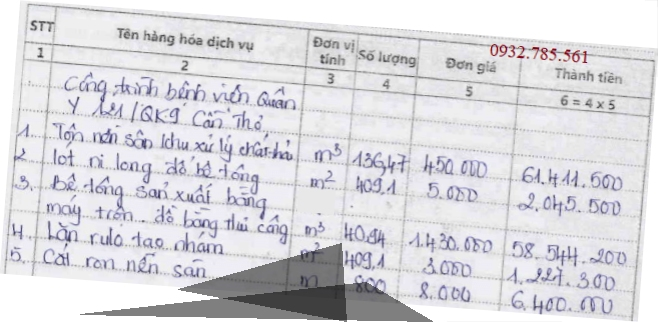 0932.785.561
STT Tên hàng hóa dịch vụ Đơn vị tính Số lượng Đơn giá Thành tiền
1 2 3 4 5 6 = 4 x 5
Công trình bệnh viện Quân
Y 121/QK9 Cần Thơ
1. Tôn nền sân khu xử lý chất thải m³ 136,47 450.000 61.411.500
2 lót ni long đổ bê tông m² 409,1 5.000 2.045.500
3. Bê tông sản xuất bằng
máy trộn.. đổ bằng thủ công m³ 40,94 1.430.000 58.544.200
4. Lăn rulo tạo nhám m² 409,1 3.000 1.227.300
5. Cắt ron nền sân m 800 8.000 6.400.000